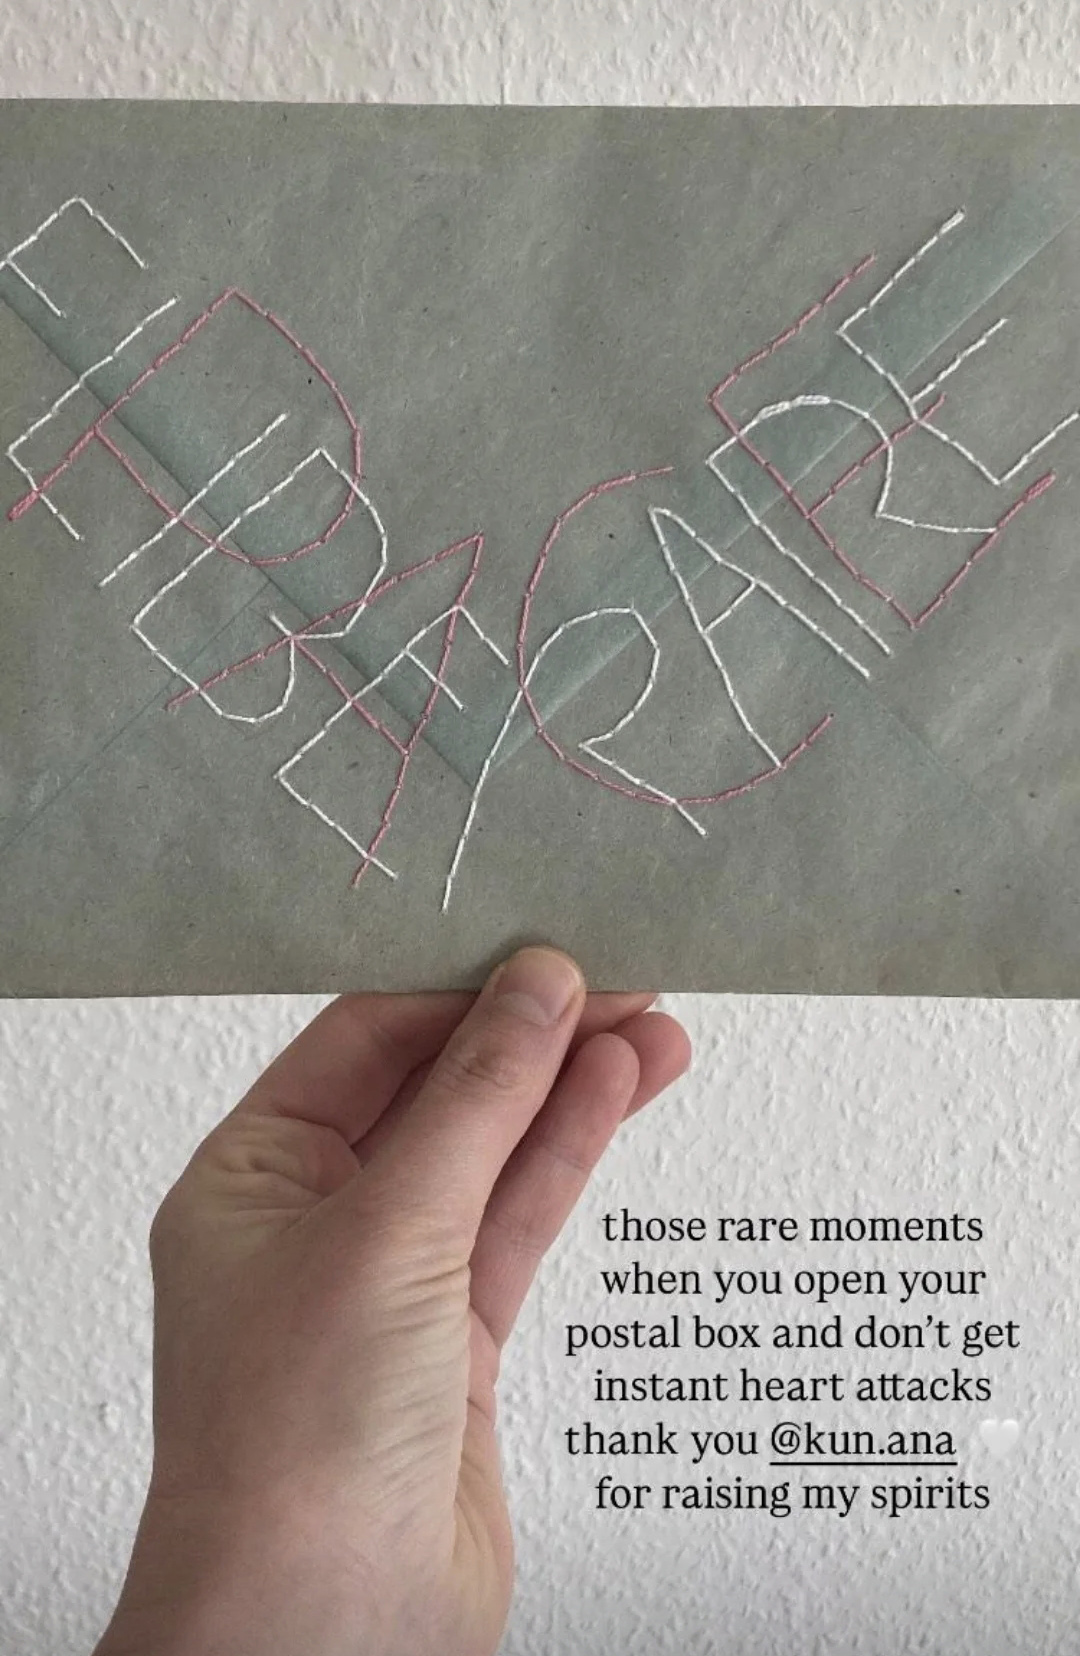 PACE
those rare moments
when you open your
postal box and don’t get
instant heart attacks
thank you @kun.ana 🤍
for raising my spirits